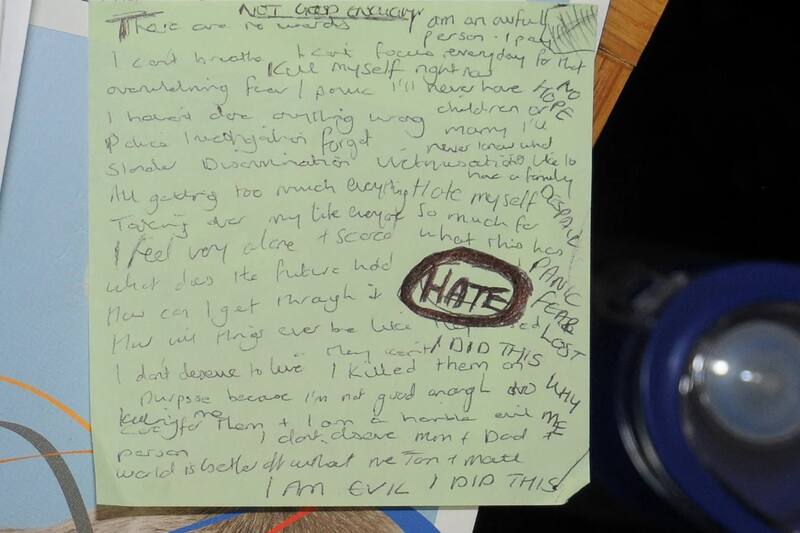 NOT GOOD ENOUGH
There are no words am an awful
person. I pay
I can't breathe I can't focus everyday for that
Kill myself right now
overwhelming fear / panic I'll never have NO
HOPE
I haven't done anything wrong children or
Police Investigation forget marry I'll
never know what
Slander Discrimination Victimisation it's like to
have a family
All getting too much everything Hate myself DESPAIR
Taking over my life everyone so much for
I feel very alone + scared what this has
what does the future hold PANIC
HATE
How can I get through it FEAR
How will things ever be like LOST
I DID THIS
I don't deserve to live They can't
I killed them on
purpose because I'm not good enough WHY
killing me ME
care for them + I am a horrible evil
person I don't deserve Mum + Dad +
world is better off without me Tom + Matt
I AM EVIL I DID THIS